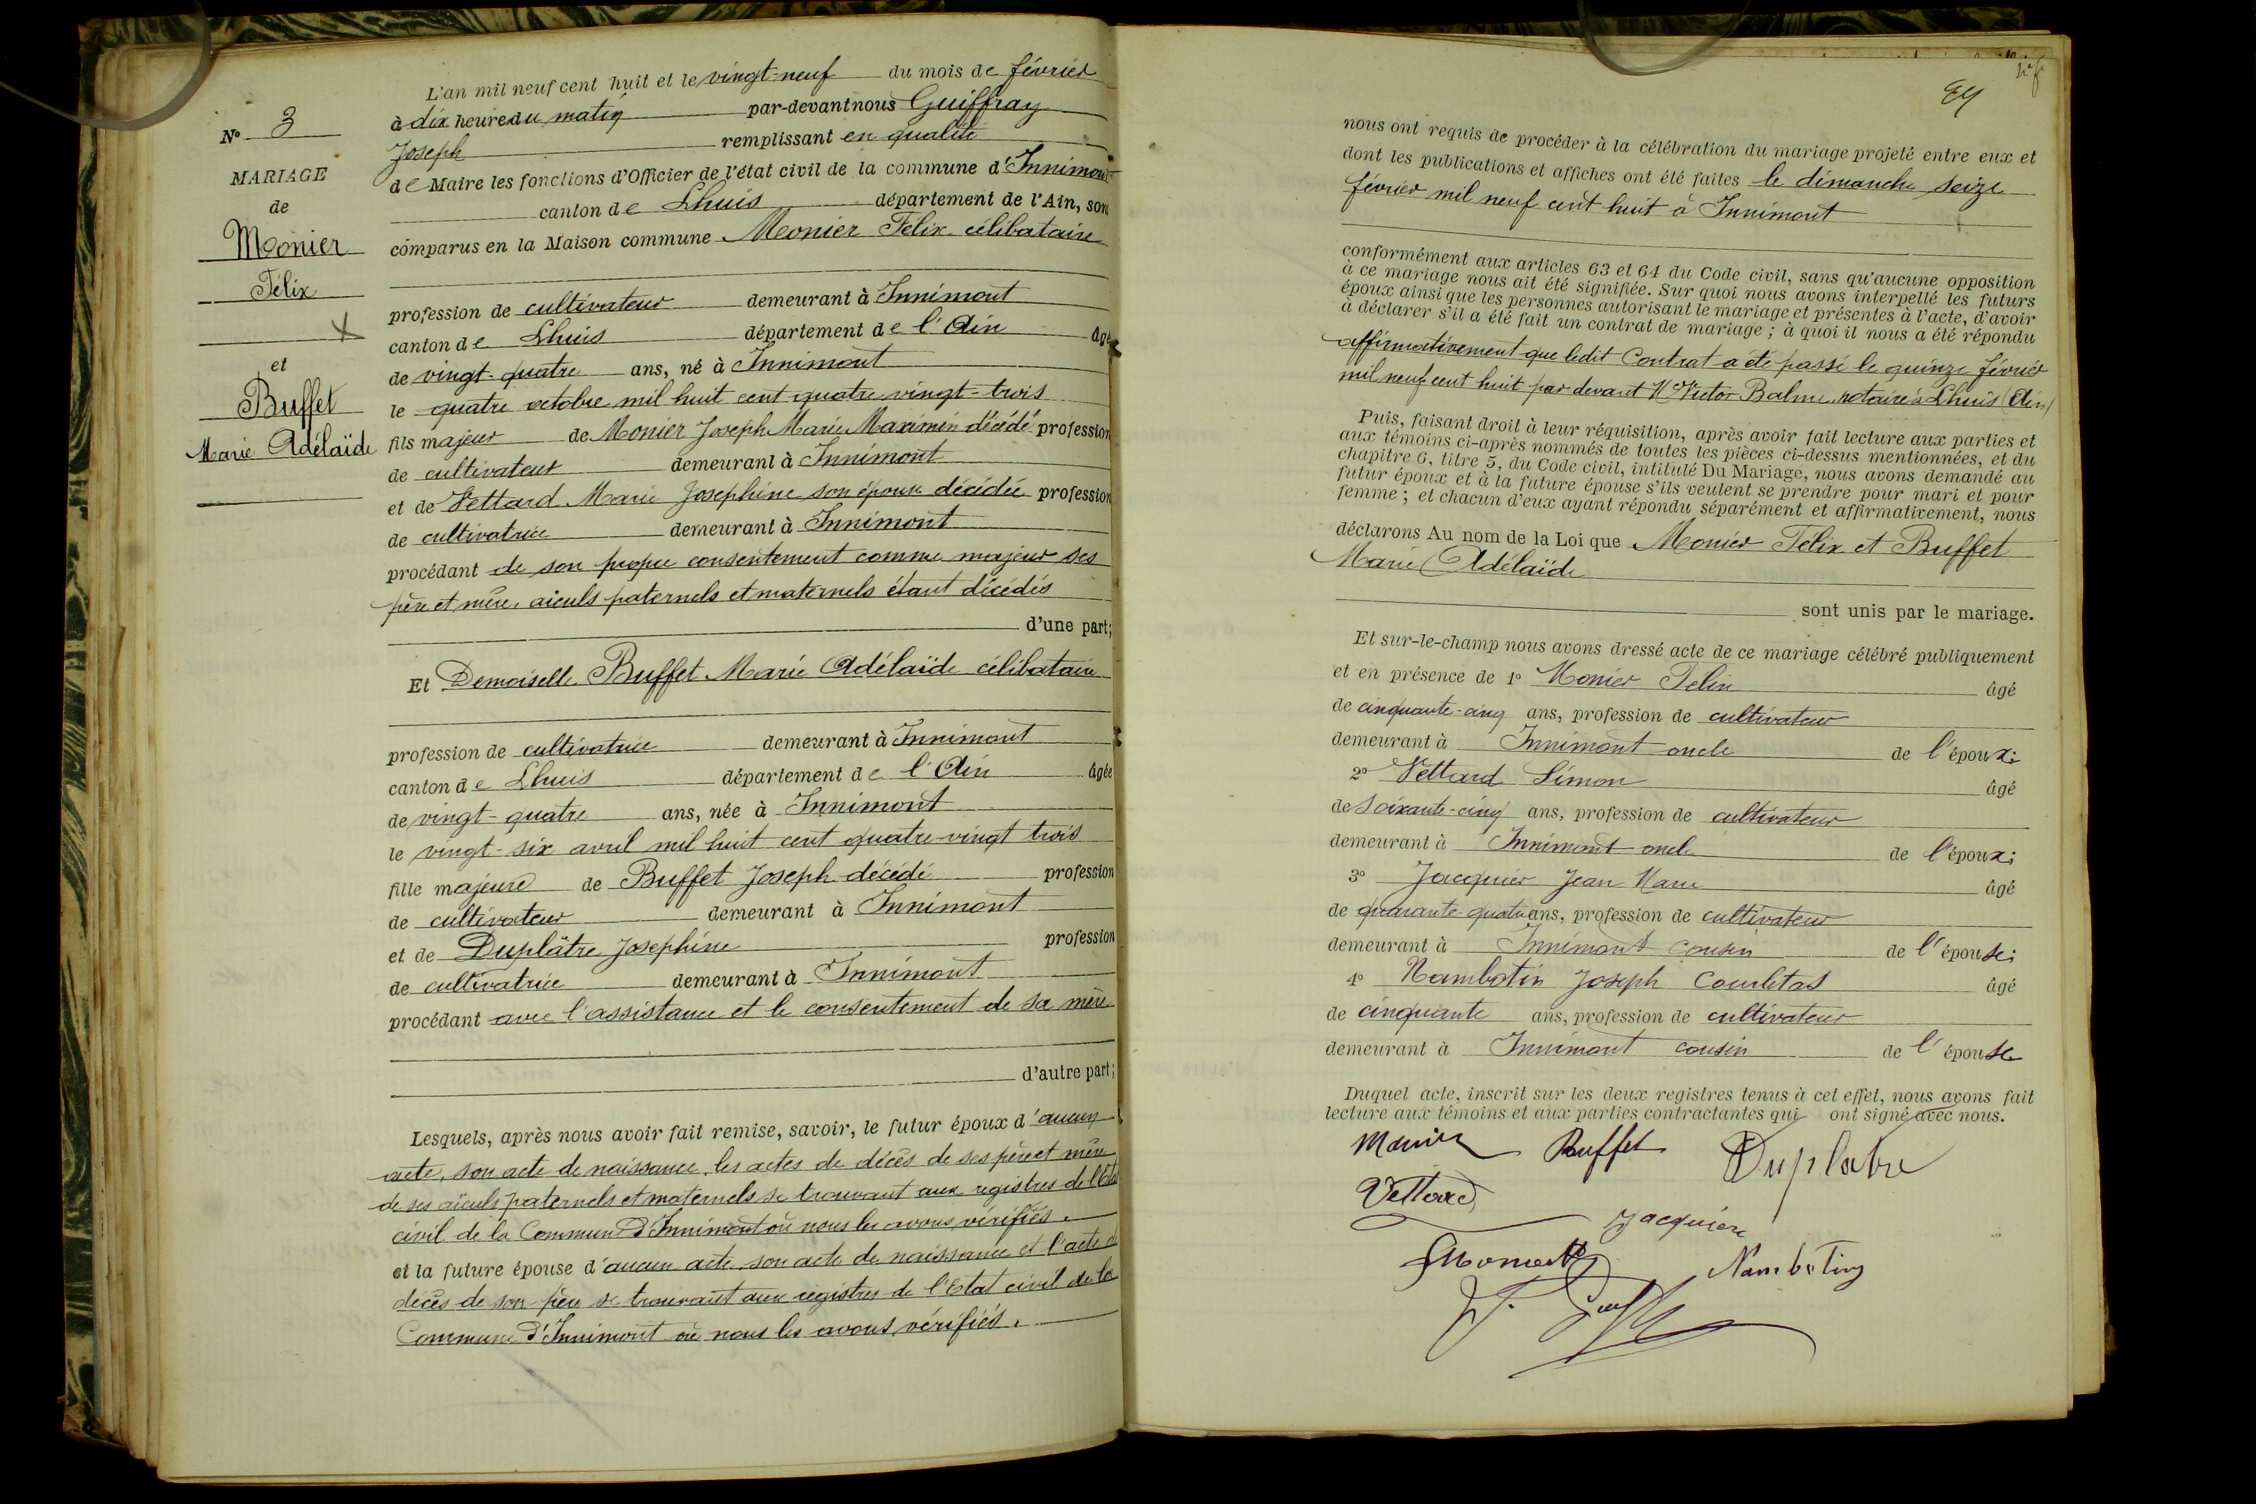 L'an mil neuf cent huit et le vingt-neuf du mois de février
à dix heures du matin par-devant nous Guiffray
Joseph remplissant en qualité
de Maire les fonctions d'Officier de l'état civil de la commune d'Innimont
canton de Lhuis département de l'Ain, sont
comparus en la Maison commune Monier Félix célibataire
profession de cultivateur demeurant à Innimont
canton de Lhuis département de l'Ain âgé
de vingt-quatre ans, né à Innimont
le quatre octobre mil huit cent quatre vingt-trois
fils majeur de Monier Joseph Marie Maximin décédé profession
de cultivateur demeurant à Innimont
et de Vettard Marie Josephine son épouse décédée profession
de cultivatrice demeurant à Innimont
procédant de son propre consentement comme majeur ses
père et mère, aieuls paternels et maternels étant décédés
d'une part;
Et Demoiselle Buffet Marie Adélaïde célibataire
profession de cultivatrice demeurant à Innimont
canton de Lhuis département de l'Ain âgée
de vingt-quatre ans, née à Innimont
le vingt-six avril mil huit cent quatre-vingt trois
fille majeure de Buffet Joseph décédé profession
de cultivateur demeurant à Innimont
et de Duplâtre Josephine profession
de cultivatrice demeurant à Innimont
procédant avec l'assistance et le consentement de sa mère
d'autre part;
Lesquels, après nous avoir fait remise, savoir, le futur époux d'aucun
acte, son acte de naissance, les actes de décès de ses père et mère
de ses aieuls paternels et maternels se trouvant aux registres de l'Etat
civil de la Commune d'Innimont où nous les avons vérifiés.
et la future épouse d'aucun acte, son acte de naissance et l'acte de
décès de son père se trouvant aux registres de l'Etat civil de la
Commune d'Innimont où nous les avons vérifiés.
No 3
MARIAGE
de
Monier
Félix
et
Buffet
Marie Adélaïde
nous ont requis de procéder à la célébration du mariage projeté entre eux et
dont les publications et affiches ont été faites le dimanche seize
février mil neuf cent huit à Innimont
conformément aux articles 63 et 64 du Code civil, sans qu'aucune opposition
à ce mariage nous ait été signifiée. Sur quoi nous avons interpellé les futurs
époux ainsi que les personnes autorisant le mariage et présentes à l'acte, d'avoir
à déclarer s'il a été fait un contrat de mariage; à quoi il nous a été répondu
affirmativement que ledit Contrat a été passé le quinze février
mil neuf cent huit par devant Me Victor Balme, notaire à Lhuis (Ain)
Puis, faisant droit à leur réquisition, après avoir fait lecture aux parties et
aux témoins ci-après nommés de toutes les pièces ci-dessus mentionnées, et du
chapitre 6, titre 5, du Code civil, intitulé Du Mariage, nous avons demandé au
futur époux et à la future épouse s'ils veulent se prendre pour mari et pour
femme; et chacun d'eux ayant répondu séparément et affirmativement, nous
déclarons Au nom de la Loi que Monier Félix et Buffet
Marie Adélaïde
sont unis par le mariage.
Et sur-le-champ nous avons dressé acte de ce mariage célébré publiquement
et en présence de 1º Monier Félix âgé
de cinquante-cinq ans, profession de cultivateur
demeurant à Innimont oncle de l'époux;
2º Vettard Simon âgé
de soixante-cinq ans, profession de cultivateur
demeurant à Innimont oncle de l'époux;
3º Jacquier Jean Marie âgé
de quarante-quatre ans, profession de cultivateur
demeurant à Innimont cousin de l'épouse;
4º Nambotin Joseph Courletas âgé
de cinquante ans, profession de cultivateur
demeurant à Innimont cousin de l'épouse
Duquel acte, inscrit sur les deux registres tenus à cet effet, nous avons fait
lecture aux témoins et aux parties contractantes qui ont signé avec nous.
Monier Buffet Duplatre
Vettard
Jacquier
Nambotin